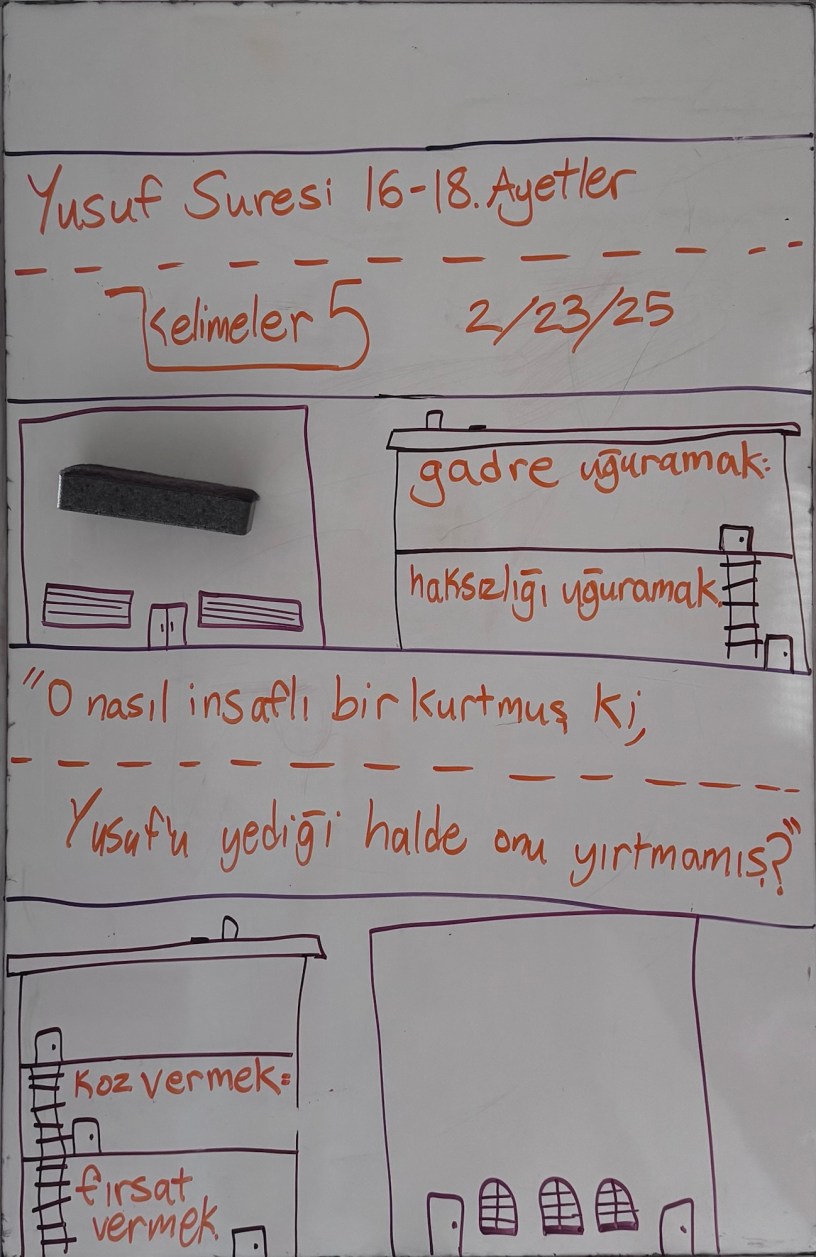 Yusuf Suresi 16-18. Ayetler
Kelimeler 5 2/23/25
gadre uğuramak:
haksızlığı uğuramak.
"O nasıl insaflı bir kurtmuş ki,
Yusuf'u yediği halde onu yırtmamış?"
Koz vermek:
fırsat
vermek